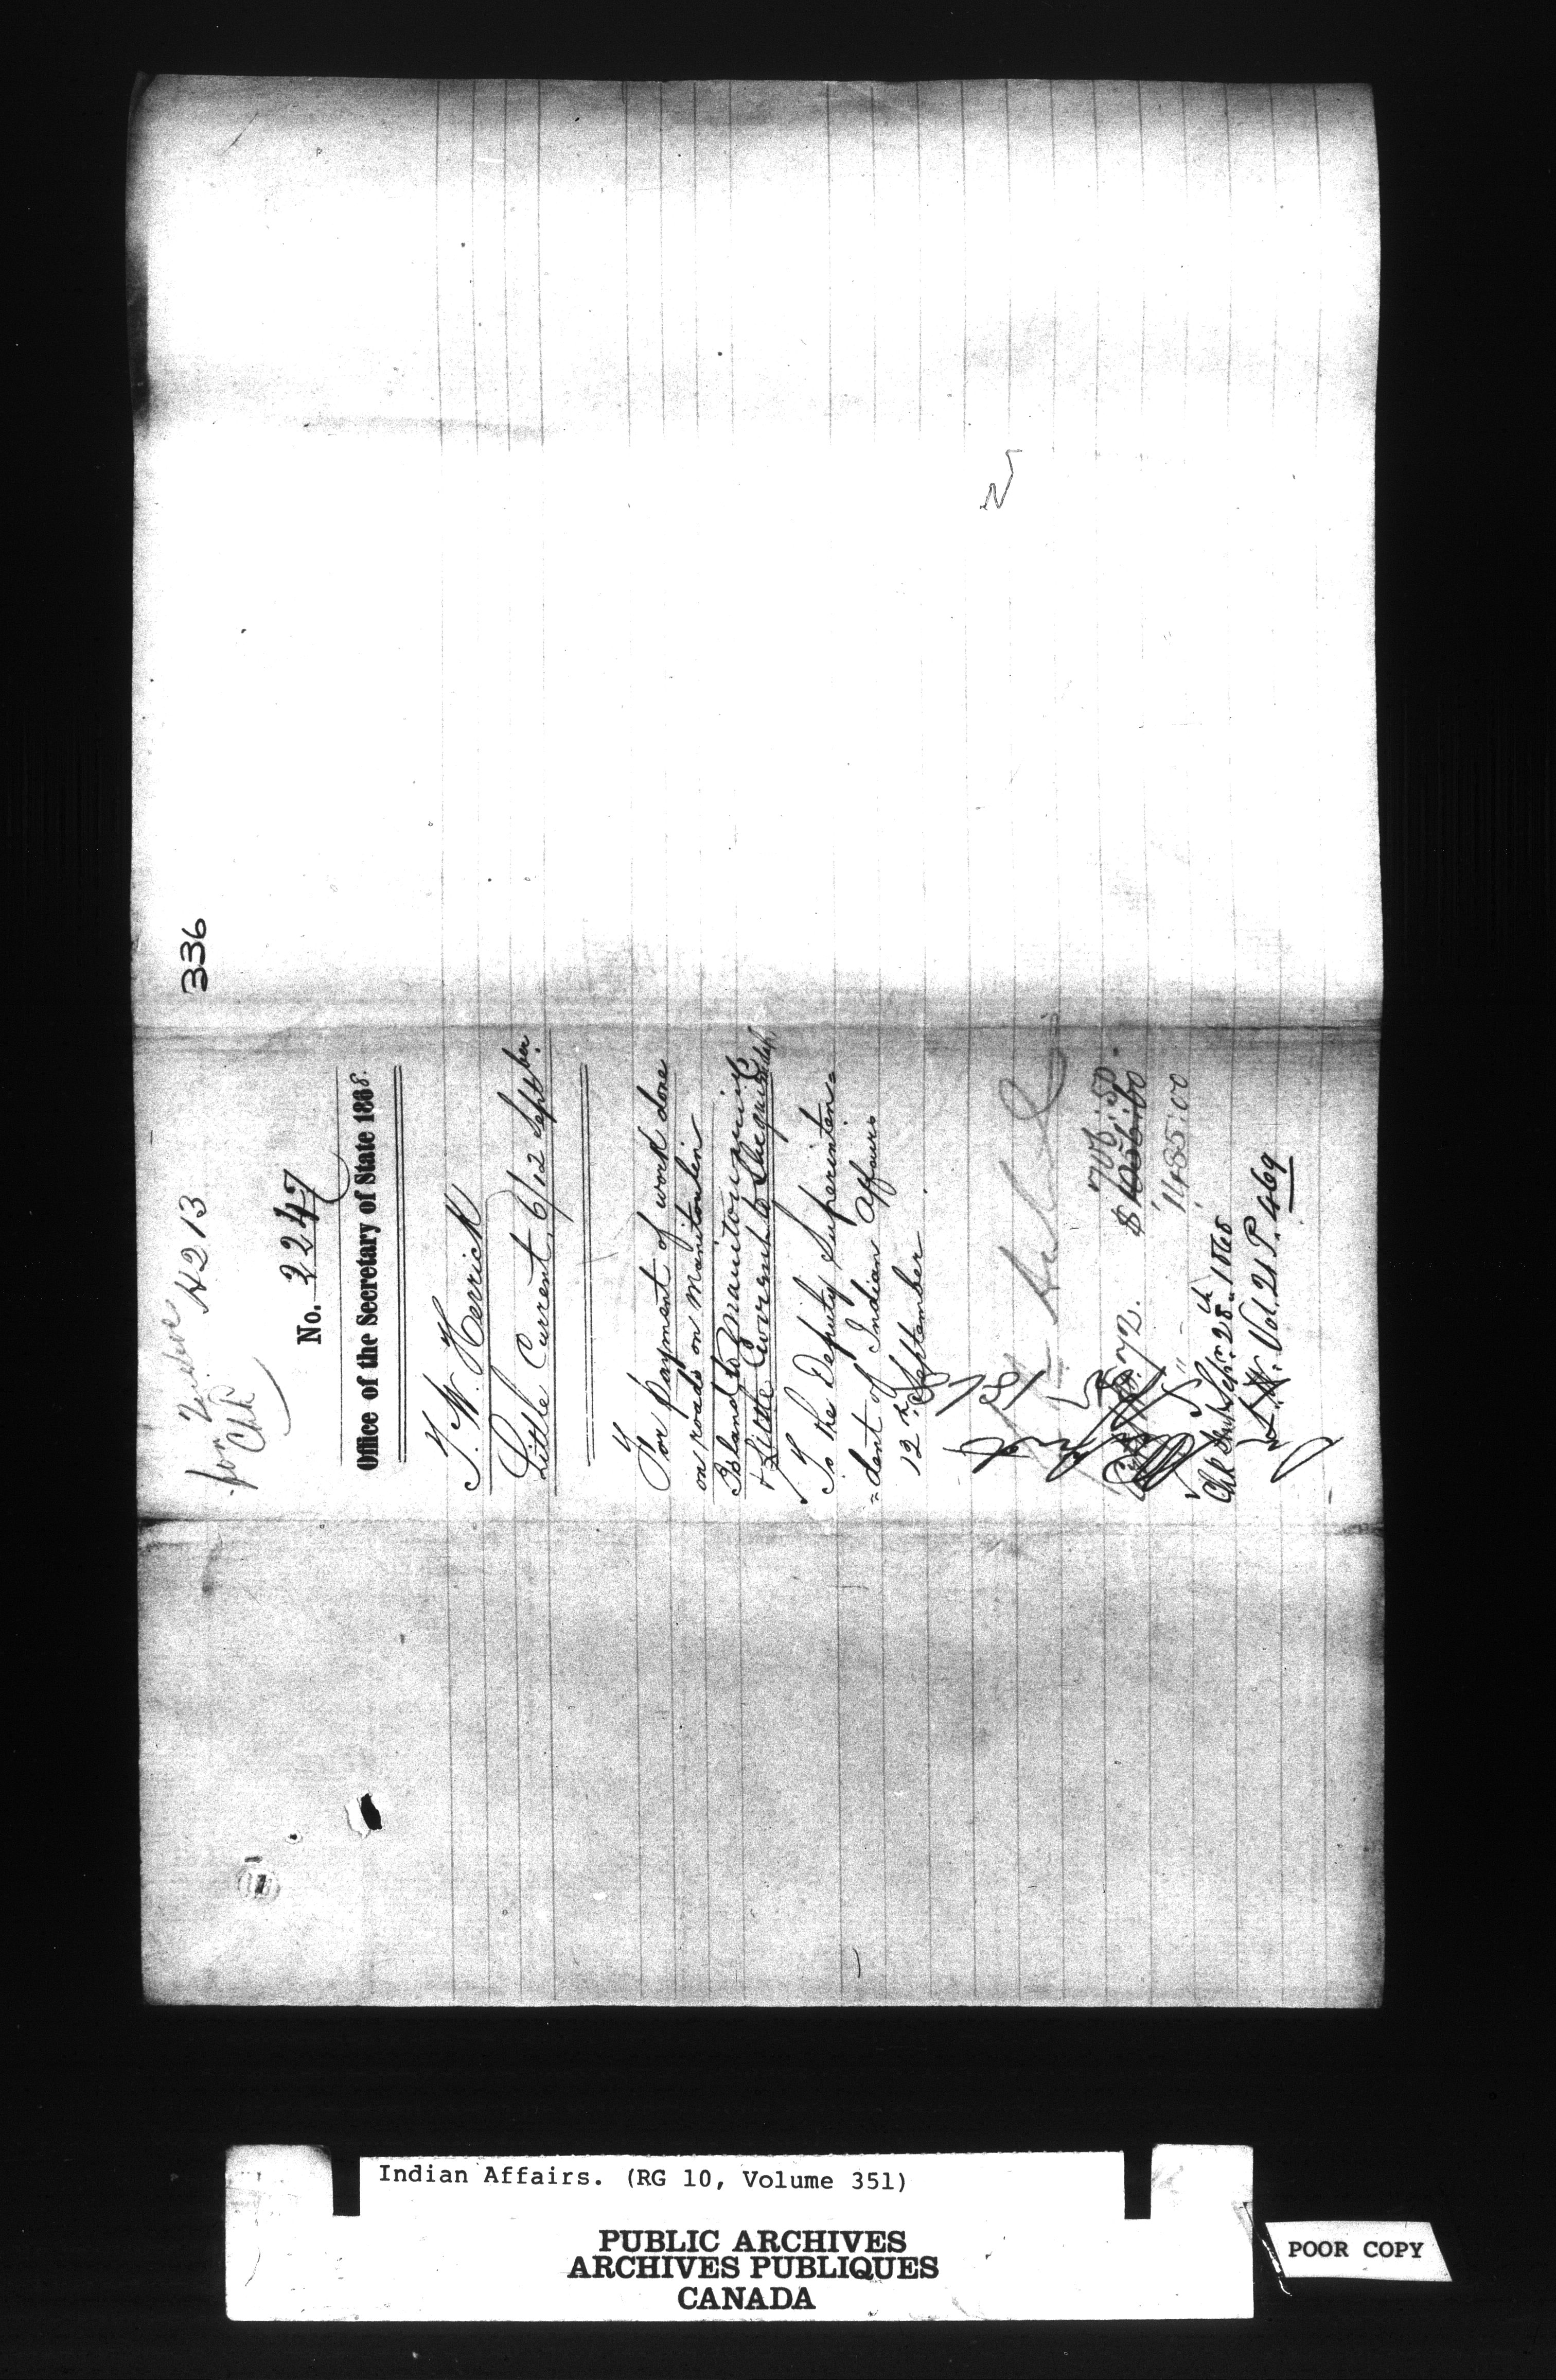 336
for
Chk
H213
No. 2247
Office of the Secretary of State 1868.
T. W. Herrick
Little Current, 6/12 Septber.
For payment of work done
on roads on Manitoulin
Island to Manitowaning
& Little Current to Sheguiandah
To the Deputy Superinten=
=dent of Indian Affairs
12th September.
706.50.
$ 1056.00
72.
1,155.00
Chk Sepr. 28th 1868
L. W. Vol. 21 P. 469
Indian Affairs. (RG 10, Volume 351)
PUBLIC ARCHIVES
ARCHIVES PUBLIQUES
CANADA
POOR COPY